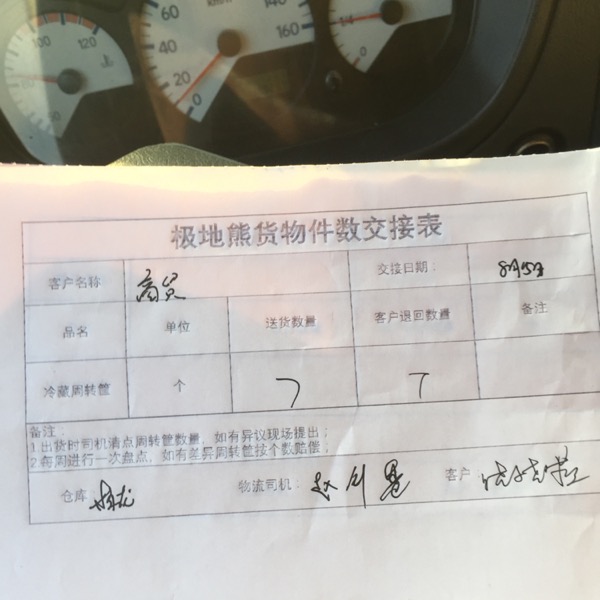 100 120
60
km/h
140
160
20
0
1/4
0
极地熊货物件数交接表
客户名称 商贸 交接日期： 8月5日
品名 单位 送货数量 客户退回数量 备注
冷藏周转筐 个 7 7
备注：
1.出货时司机清点周转筐数量，如有异议现场提出；
2.每周进行一次盘点，如有差异周转筐按个数赔偿；
仓库： 物流司机： 客户：